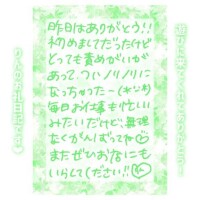 昨日はありがとう!!
初めましてだったけど
とっても責めがいが
あって、ついノリノリに
なっちゃったー
毎日お仕事も忙しい
みたいだけど、無理
なくがんばってね
またぜひお店にも
いらしてください!!